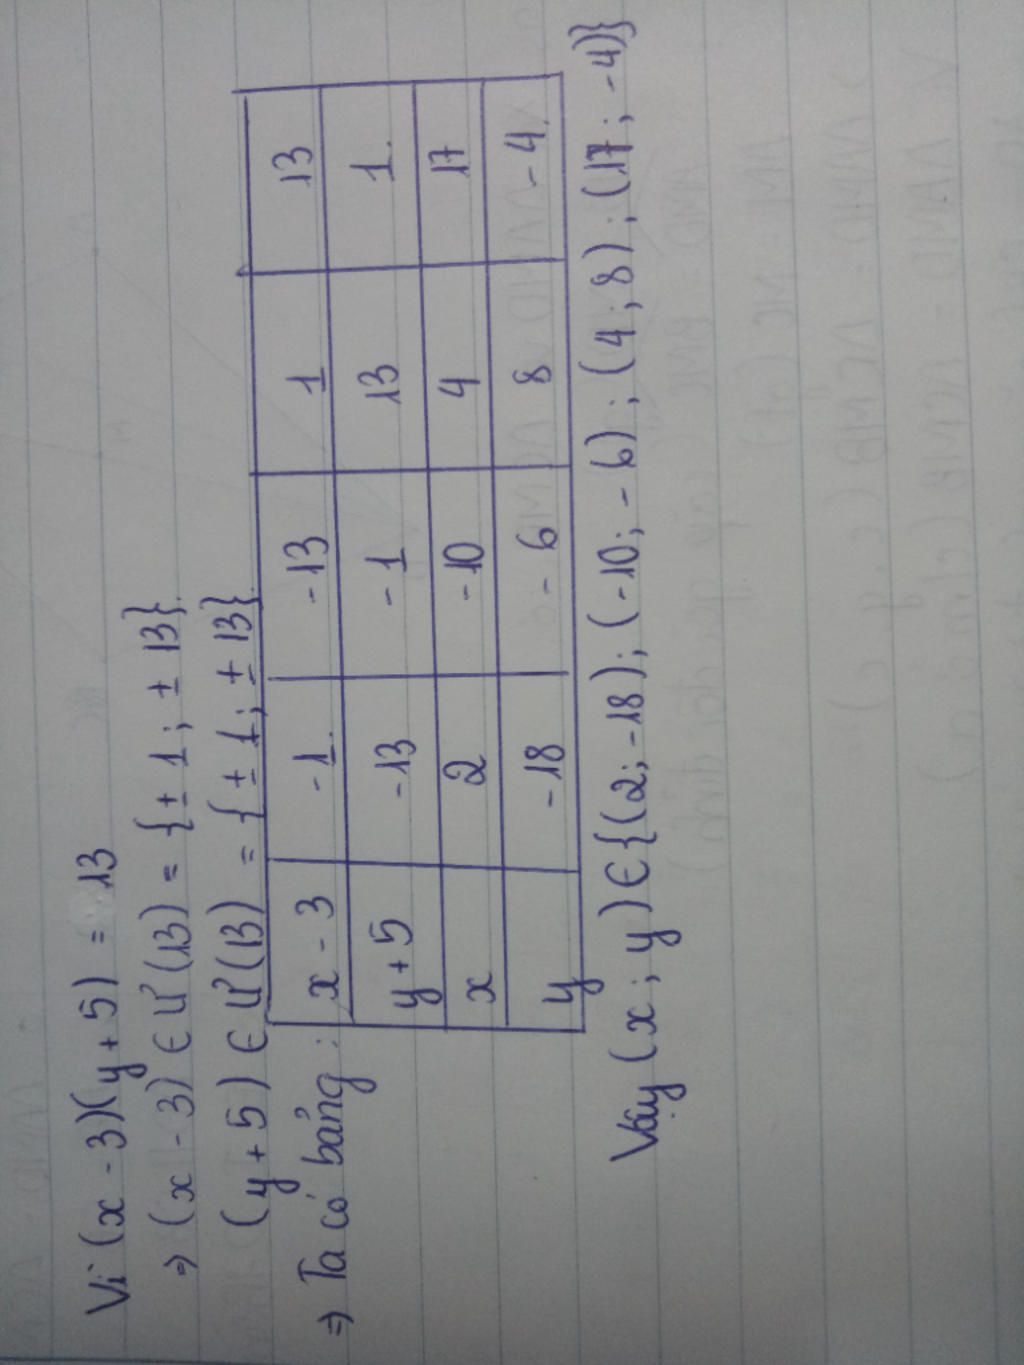 Vì (x - 3)(y + 5) = 13
⇒ (x - 3) ∈ Ư(13) = {± 1 ; ± 13}.
(y + 5) ∈ Ư(13) = {± 1 ; ± 13}.
⇒ Ta có bảng :
x - 3 -1. -13 1 13
y + 5 -13 -1 13 1.
x 2 -10 4 17
y -18 -6 8 -4.
Vậy (x ; y) ∈ {(2; -18); (-10; -6) ; (4 ; 8) ; (17 ; -4)}